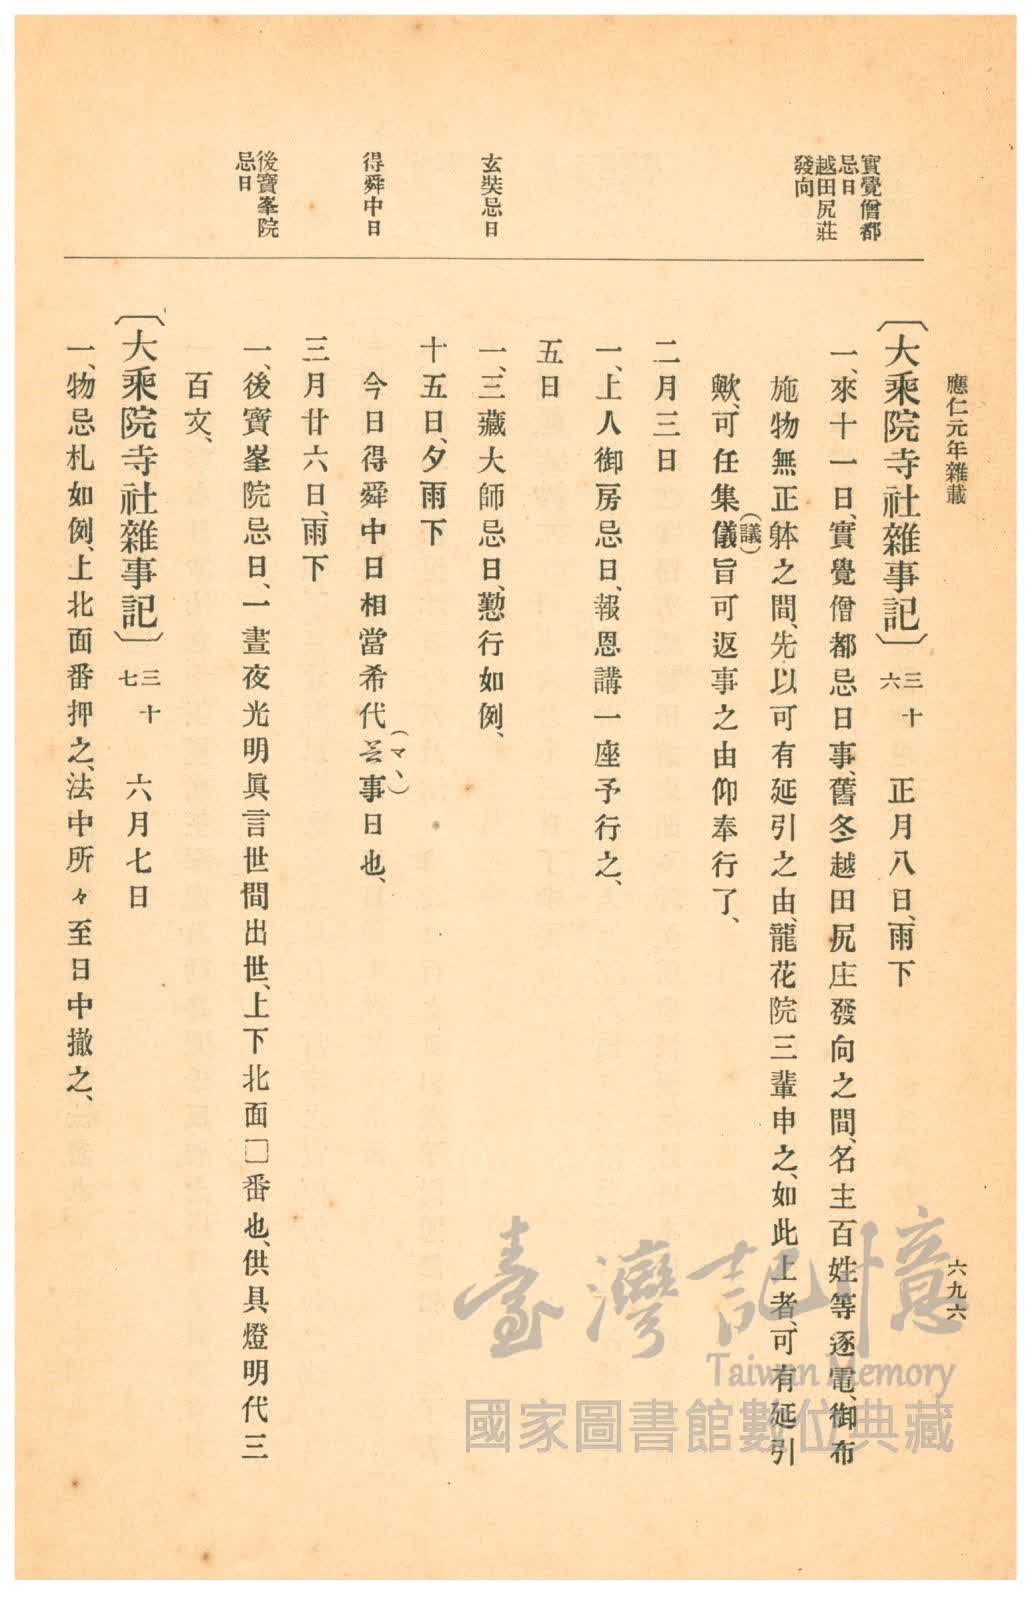 應仁元年雜載
六九六
實覺僧都
忌日
越田尻莊
發向
玄奘忌日
得舜中日
後寶峯院
忌日
〔大乘院寺社雜事記〕三十六 正月八日、雨下
一、來十一日、實覺僧都忌日事、舊冬越田尻庄發向之間、名主百姓等逐電、御布
施物無正躰之間、先以可有延引之由、龍花院三輩申之、如此上者、可有延引
歟、可任集儀(議)旨可返事之由仰奉行了、
二月三日
一、上人御房忌日、報恩講一座予行之、
五日
一、三藏大師忌日、懃行如例、
十五日、夕雨下
今日得舜中日相當希代(マヽ)事日也、
三月廿六日、雨下
一、後寶峯院忌日、一晝夜光明眞言世間出世、上下北面□番也、供具燈明代三
百文、
〔大乘院寺社雜事記〕三十七 六月七日
一、物忌札如例、上北面番押之、法中所々至日中撤之、
臺灣記憶
Taiwan Memory
國家圖書館數位典藏